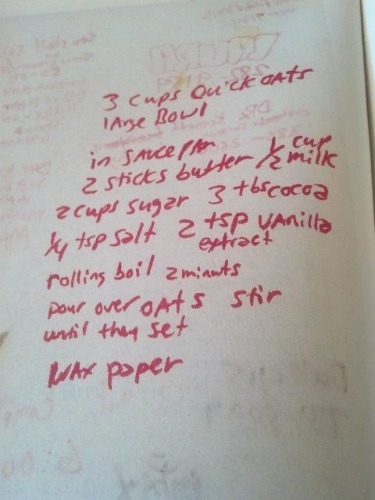 3 cups Quick OATS
large Bowl
in SAUCE PAN
2 sticks butter 1/2 cup milk
2 cups sugar 3 tbs cocoa
1/4 tsp salt 2 tsp VANilla
extract
rolling boil 2 minuts
pour over OATS stir
until they set
WAX paper